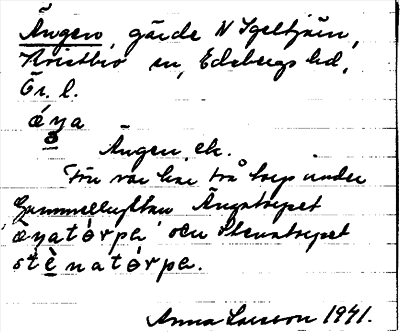 Ängen, gärde N Igeltjärn,
Kvistbro sn, Edsbergs hd,
Ör. l.
áŋa
Ängen ek.
Förr var här två torp under
Gammelhyttan Ängatorpet
ɑ̈ŋatórpa och Stenatorpet
stènatórpa.
Anna Larsson 1941.